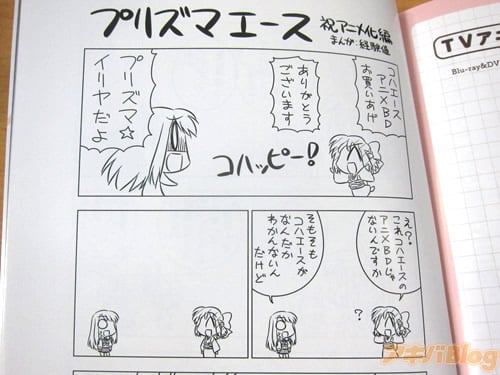 プリズマエース
祝アニメ化編
まんが:経験値
コハエース
アニメBD
お買いあげ
ありがとう
ございます
コハッピー!
プリズマ☆
イリヤだよ
え?
これコハエースの
アニメBDじゃ
ないんですか
?
そもそも
コハエースが
なんだか
わかんないん
だけど
TVアニ
Blu-ray&DV
アキバBlog